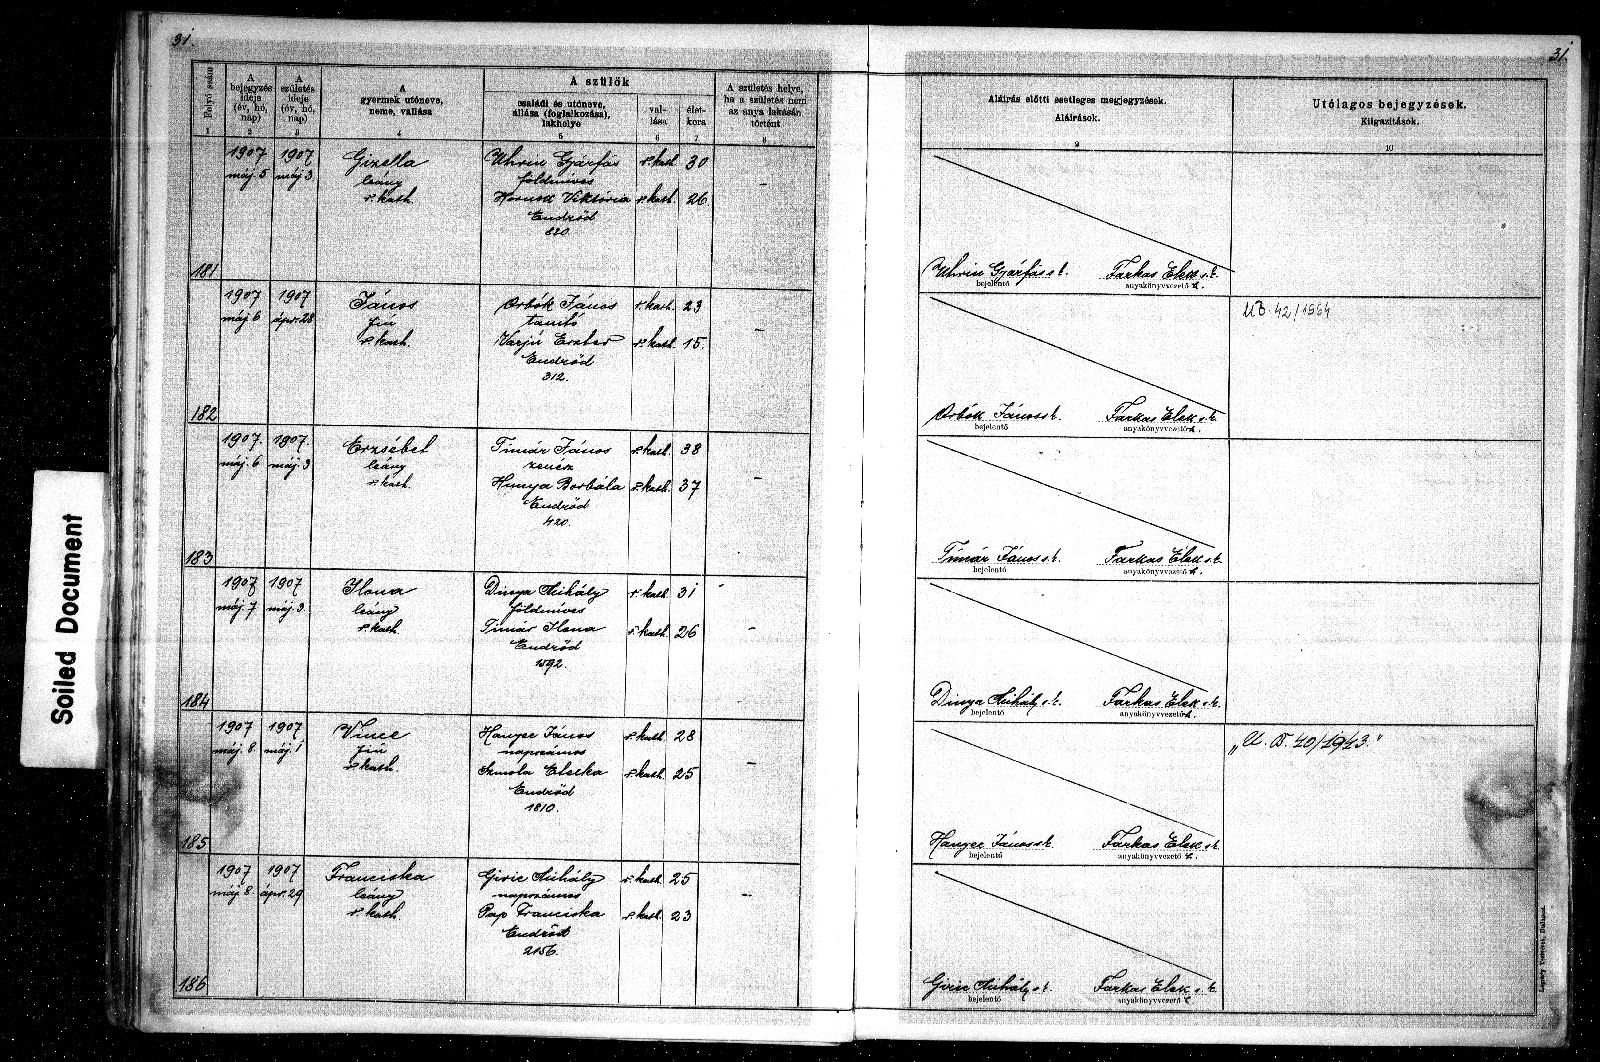 31.
31.
Folyó szám
A bejegyzés ideje (év, hó, nap)
A születés ideje (év, hó, nap)
A gyermek utóneve, neme, vallása
A szülők
családi és utóneve, állása (foglalkozása), lakhelye
vallása
életkora
A születés helye, ha a születés nem az anya lakásán történt
Aláírás előtti esetleges megjegyzések.
Aláírások.
Utólagos bejegyzések.
Kiigazítások.
1 2 3 4 5 6 7 8 9 10
181
1907 máj. 5
1907 máj. 3
Gizella
leány
r. kath.
Uhrin Gyárfás r. kath. 30
földmives
Viktória r. kath. 26
Endrőd
820.
–
Uhrin Gyárfás s. k.
bejelentő
Farkas Elek s. k.
anyakönyvvezető h.
182
1907 máj. 6
1907 ápr. 28
János
fiú
r. kath.
Orbók János r. kath. 23
tanító
Varjú Eszter r. kath. 15.
Endrőd
312.
–
Orbók János s. k.
bejelentő
Farkas Elek s. k.
anyakönyvvezető h.
UB. 42/1964
183
1907. máj. 6
1907. máj. 3
Erzsébet
leány
r. kath.
Timár János r. kath. 38
zenész
Hunya Borbála r. kath. 37
Endrőd
420.
–
Timár János s. k.
bejelentő
Farkas Elek s. k.
anyakönyvvezető h.
184
1907 máj. 7
1907 máj. 3
Ilona
leány
r. kath.
Dinya Mihály r. kath. 31
földmives
Timár Ilona r. kath. 26
Endrőd
1592.
–
Dinya Mihály s. k.
bejelentő
Farkas Elek s. k.
anyakönyvvezető h.
185
1907 máj. 8.
1907 máj. 1
Vince
fiú
r. kath.
Hanyec János r. kath. 28
napszámos
Szmola Etelka r. kath. 25
Endrőd
1810.
–
Hanyec János s. k.
bejelentő
Farkas Elek s. k.
anyakönyvvezető h.
„U. B. 40/1943."
186
1907 máj. 8.
1907 ápr. 29
Franciska
leány
r. kath.
Giric Mihály r. kath. 25
napszámos
Pap Franciska r. kath. 23
Endrőd
2156.
–
Giric Mihály s. k.
bejelentő
Farkas Elek s. k.
anyakönyvvezető h.
Soiled Document